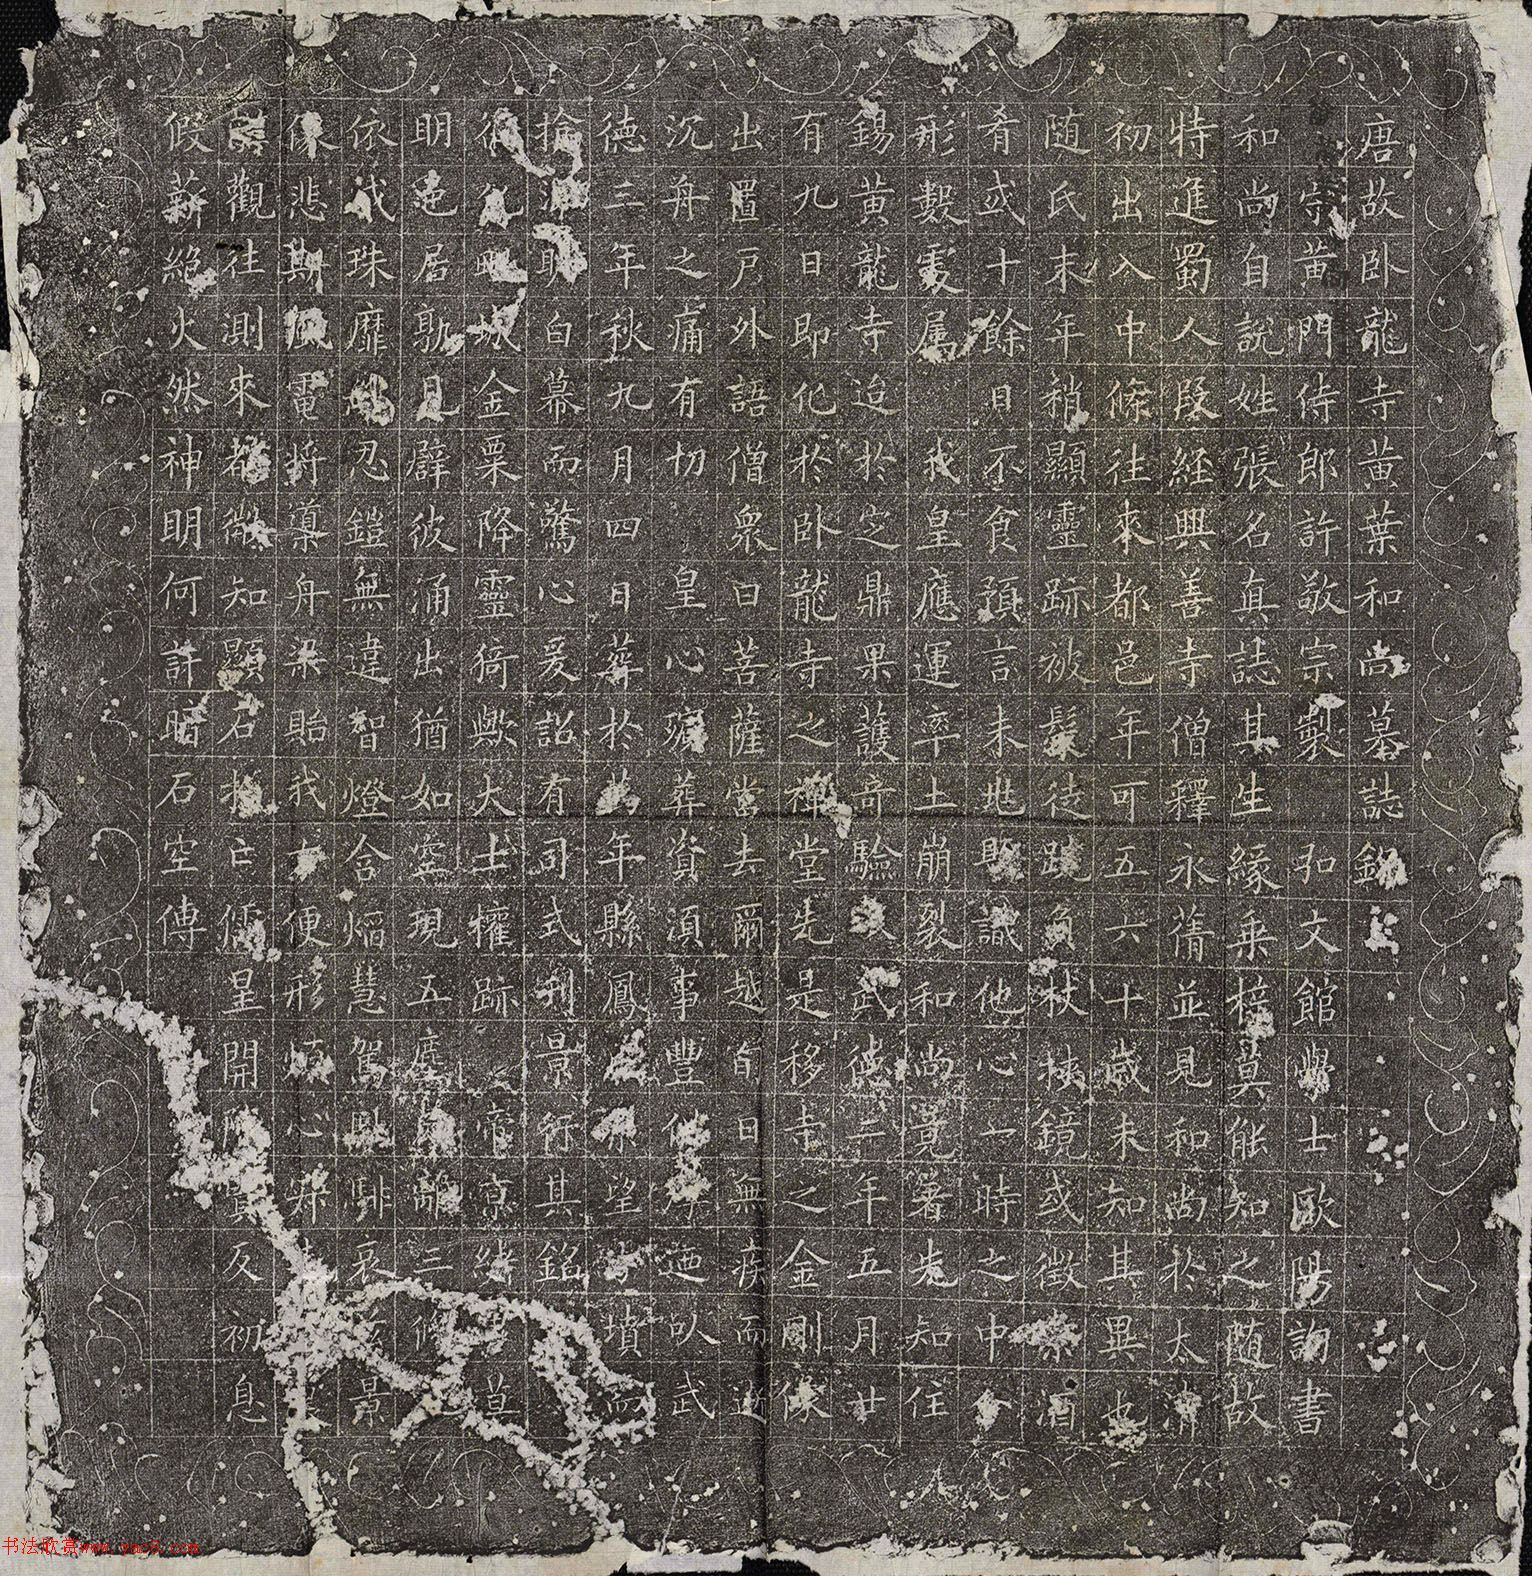 唐故卧龍寺黃葉和尚墓誌銘
宗黃門侍郎許敬宗製 弘文館學士歐陽詢書
和尚自說姓張名真誌其生緣桑梓莫能知之随故
特進蜀人段經興善寺僧釋永蒨並見和尚於太清
初出入中條往來都邑年可五六十歲未知其異也
随氏末年稍顯靈跡被髮徒跣負杖挾鏡或徵索酒
肴或十餘日不食預言未兆識他心一時之中分
形數處属 我皇應運率土崩裂和尚竟著先知住
錫黃龍寺迨於定鼎果護奇驗 武德二年五月廿
有九日即化於卧龍寺之禪堂先是移寺之金剛像
出置戶外語僧衆曰菩薩當去爾越旬日無疾而逝
沉舟之痛有切 皇心殯葬資須事豐供 迺以武
德三年秋九月四日葬於萬年縣鳳 原望 墳而
掩 白幕而驚心爰詔有司式刊景行其銘
城金粟降靈猗歟大士權跡 帝京緒
明絶居孰見躃彼涌出猶如空現五塵 離三
依我珠靡 忍鎧無違智燈含焰慧駕 騑哀 景
像悲斯風電將導舟梁貽我方便形 心
觀往測來都微知顯石 亡儒星開 反初息
假薪絕火然神明何許暗石空傳
书法欣赏www.yac8.com